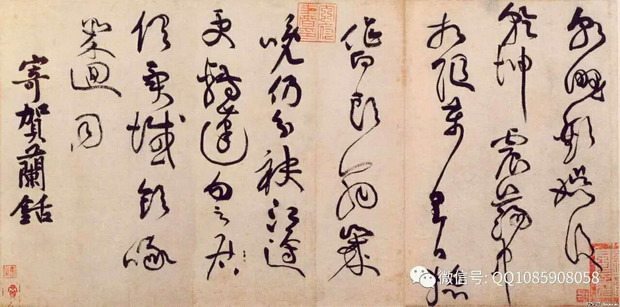 朝野歡娱後
乾坤震蕩中
相隨萬里日揔
作白頭翁歲
晚仍分袂江邊
更轉蓬勿云
俱異域飲啄
幾迴同
寄賀蘭銛
微信号: QQ1085908058